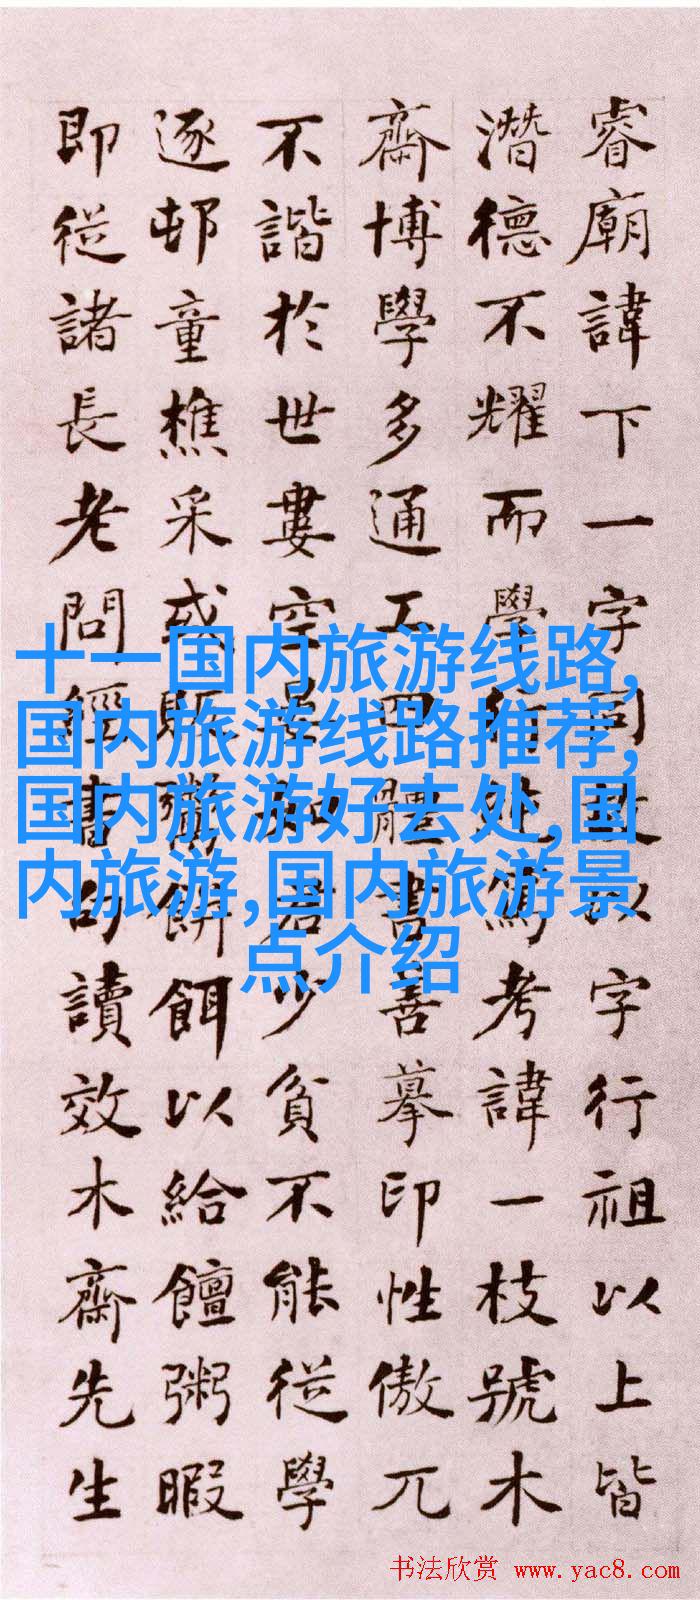 睿廟諱下一字同故以字行祖以上皆
潛德不耀而學行處寫考諱一枝號木
齋博學多通工四體書善摹印性傲兀
不諧於世婁空晏如君少貧不能從學
逐邨童樵采或販鬻餅餌以給饘粥暇
即從諸長老問經書句讀效木齋先生
十一国内旅游线路,
国内旅游线路推荐,
国内旅游好去处,国
内旅游,国内旅游景
点介绍
书法欣赏 www.yac8.com